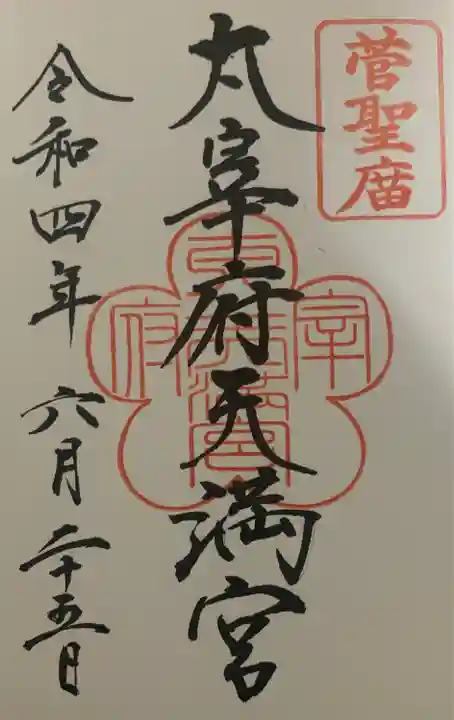 菅聖庿
太宰府天満宮
令和四年 六月二十五日